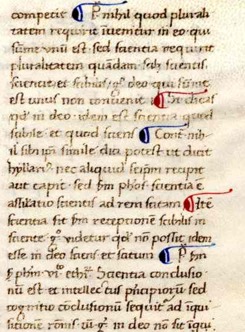 competit ¶ P. nihil quod plurali
tatem requirit invenitur in eo qui
sume unus est sed scientia requirit
pluralitatem quandam scilicet scientis
scientis et scibilis g deo qui sume
est unus non convenit ¶ Si dicas
qd in deo idem est scientia quod
scibile et quod sciens ¶ Cont nih
il sibi ipsi simile dici potest ut dicit
hyllari nec aliquid seipm recipit
aut capit sed sm phos scientia e
assilatio scientis ad rem scitam ¶ Ite
scientia fit sm receptione scibilis in
sciente g videtur qd non possit idem
esse in deo sciens et scitum ¶ P. sm
phm vi ethi Scientia conclusio
nu est et intellectus phicipiorum sed
cognitio conclusionu sequitur ad iqui
sitione romis g in deo no sit iqui